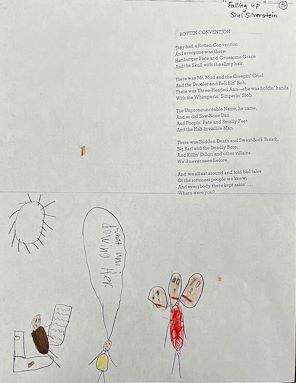 "Falling up" 5
Shel Silverstein
ROTTEN CONVENTION
They had a Rotten Convention
And everyone was there:
Hamburger Face and Gruesome Grace
And the Skull with the slimy hair.
There was Mr. Mud and the Creepin' Crud
And the Drooler and Belchin' Bob,
There was Three-Headed Ann—she was holdin' hands
With the Whimperin' Simperin' Slob.
The Unpronounceable Name, he came,
And so did Saw-Nose Dan
And Poopin' Pete and Smelly Feet
And the Half-Invisible Man.
There was Sudden Death and Sweat-Sock Breath,
Big Barf and the Deadly Bore,
And Killin' Dillon and other villains
We'd never seen before.
And we all sat around and told bad tales
Of the rottenest people we knew,
And everybody there kept askin' ...
Where were you?